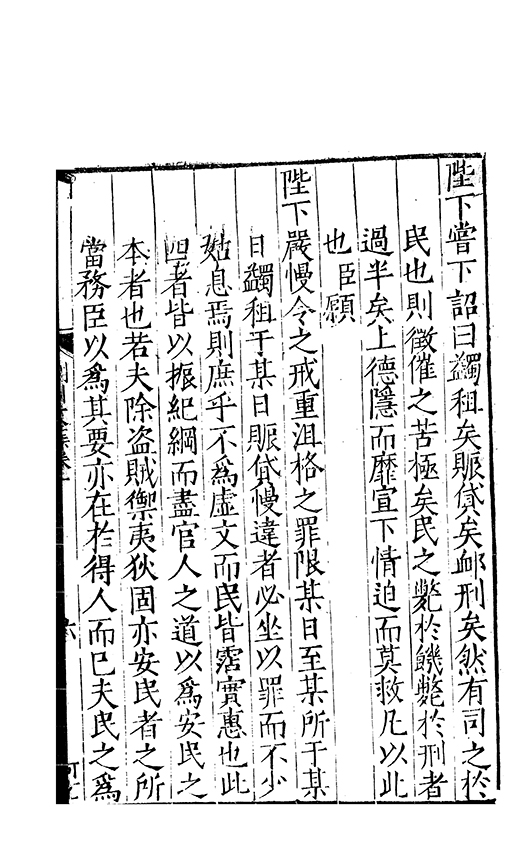 陛下嘗下詔曰蠲租矣賑貸矣䘏刑矣然有司之於
民也則徵催之苦極矣民之斃於饑斃於刑者
過半矣上德隱而靡宣下情迫而莫救凡以此
也臣願
陛下嚴慢令之戒重沮格之罪限某日至某所于某
日蠲租于某日賑貸慢違者必坐以罪而不少
姑息焉則庶乎不爲虛文而民皆霑實惠也此
四者皆以振紀綱而盡官人之道以爲安民之
本者也若夫除盜賊禦夷狄固亦安民者之所
當務臣以爲其要亦在於得人而已夫民之爲
六